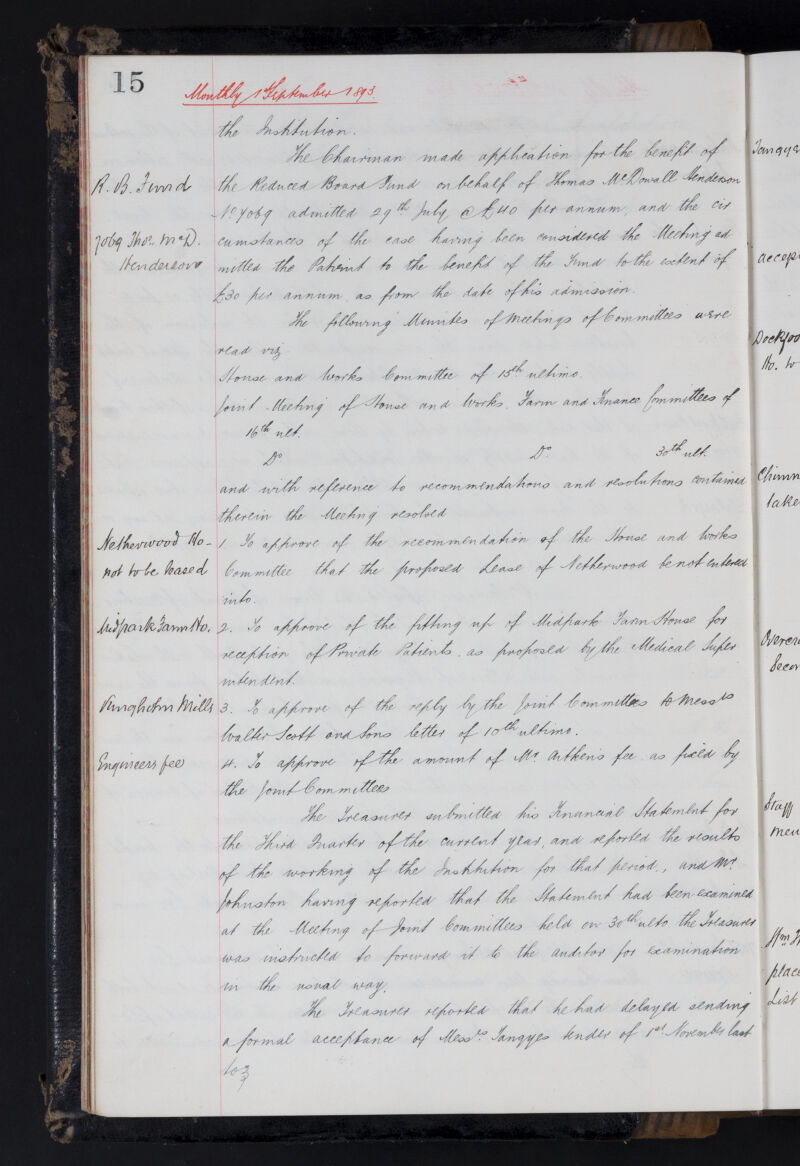 15
Monthly 1st September 1893
the Institution.
The Chairman made application for the benefit of
R. B. Fund
the Reduced Board Fund on behalf of Thomas McDowall Henderson
No. 7069 admitted 29th July @ £40 per annum, and the cir
7069 Thos. McD.
Henderson
cumstances of the case having been considered the Meeting ad
mitted the Patient to the benefit of the Fund to the extent of
£30 per annum, as from the date of his admission.
The following Minutes of Meetings of Committees were
read viz
House and Works Committee of 15th ultimo.
Joint Meeting of House and Works, Farm and Finance Committees of
16th ult.
Do Do 30th ult.
and with reference to recommendations and resolutions contained
therein the Meeting resolved
Netherwood Ho.
not to be leased
1. To approve of the recommendation of the House and Works
Committee that the proposed Lease of Netherwood be not entered
into.
Midpark Farm Ho.
2. To approve of the fitting up of Midpark Farm House for
reception of Private Patients, as proposed by the Medical Super
intendent.
Kingholm Mills
3. To approve of the reply by the Joint Committees to Messrs
Walter Scott and Sons letter of 10th ultimo.
Engineers fee
4. To approve of the amount of Mr. Aitken's fee as fixed by
the Joint Committees
The Treasurer submitted his Financial Statement for
the Third Quarter of the current year, and reported the results
of the working of the Institution for that period, and Mr.
Johnston having reported that the Statement had been examined
at the Meeting of Joint Committees held on 30th ulto the Treasurer
was instructed to forward it to the auditor for examination
in the usual way.
The Treasurer reported that he had delayed sending
a formal acceptance of Messrs Tangyes tender of 1st November last
for
Tangye
accept
Ho. to
Chimn
take
Staff
place
List